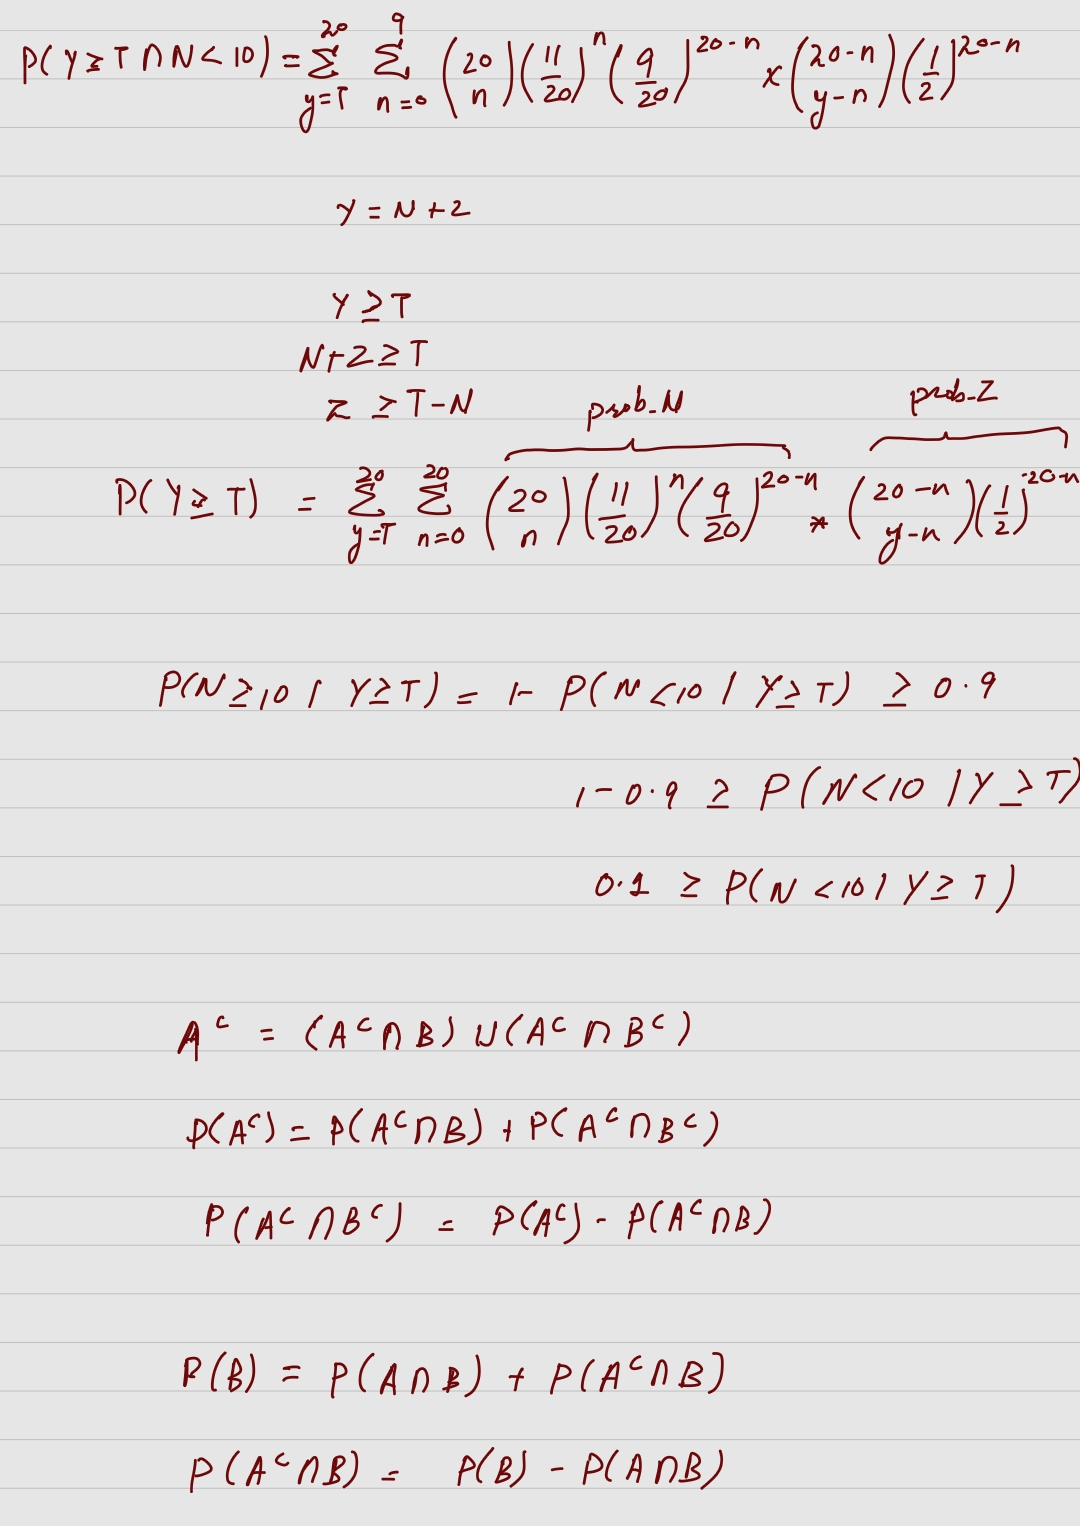 P(Y ≥ T ∩ N < 10) = \sum_{y=T}^{20} \sum_{n=0}^{9} \binom{20}{n} (\frac{11}{20})^{n} (\frac{9}{20})^{20-n} × \binom{20-n}{y-n} (\frac{1}{2})^{20-n}
Y = N + Z
Y ≥ T
N + Z ≥ T
Z ≥ T - N
prob_N prob_Z
P(Y ≥ T) = \sum_{y=T}^{20} \sum_{n=0}^{20} \binom{20}{n} (\frac{11}{20})^{n} (\frac{9}{20})^{20-n} * \binom{20-n}{y-n} (\frac{1}{2})^{20-n}
P(N ≥ 10 | Y ≥ T) = 1 - P(N < 10 | Y ≥ T) ≥ 0.9
1 - 0.9 ≥ P(N < 10 | Y ≥ T)
0.1 ≥ P(N < 10 | Y ≥ T)
A^c = (A^c ∩ B) ∪ (A^c ∩ B^c)
P(A^c) = P(A^c ∩ B) + P(A^c ∩ B^c)
P(A^c ∩ B^c) = P(A^c) - P(A^c ∩ B)
P(B) = P(A ∩ B) + P(A^c ∩ B)
P(A^c ∩ B) = P(B) - P(A ∩ B)